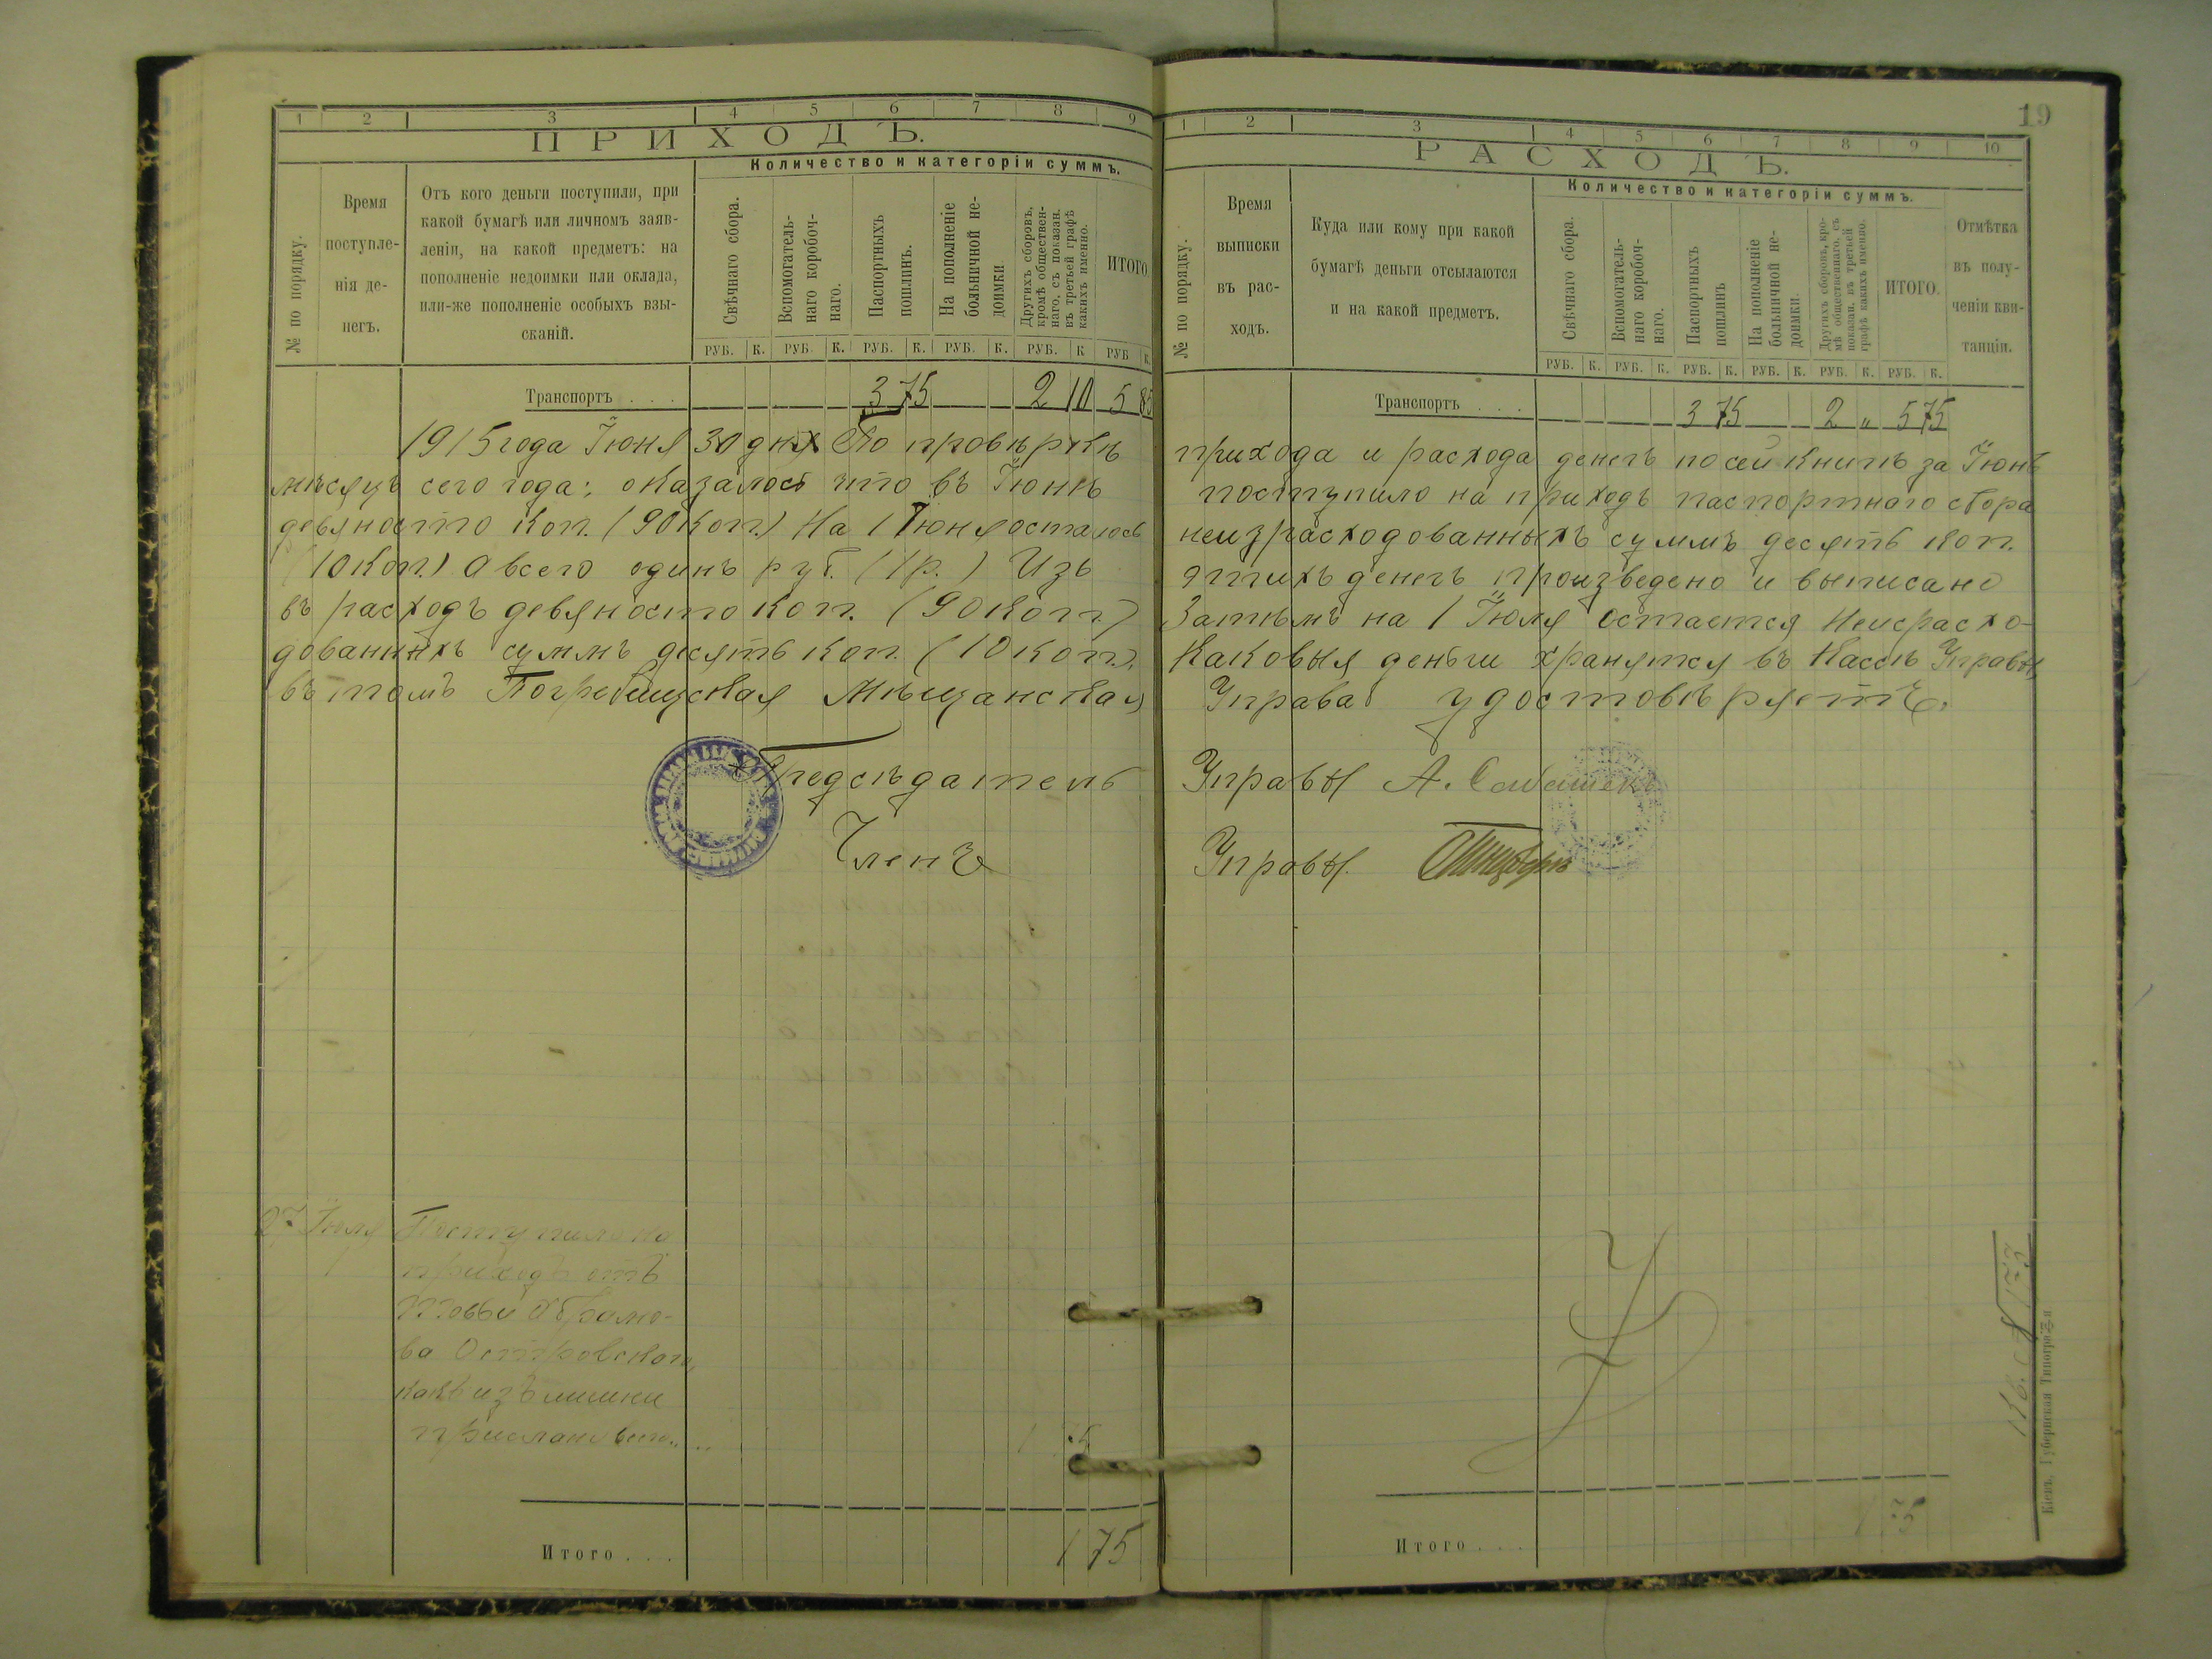 19
1 2 3 4 5 6 7 8 9
ПРИХОДЪ.
Количество и категоріи суммъ.
№ по порядку.
Время
поступле-
нія де-
негъ.
Отъ кого деньги поступили, при
какой бумагѣ или личномъ заяв-
леніи, на какой предметъ: на
пополненіе недоимки или оклада,
или-же пополненіе особыхъ взы-
сканій.
Свѣчнаго сбора.
Вспомогатель-
наго коробоч-
наго.
Паспортныхъ
пошлинъ.
На пополненіе
больничной не-
доимки.
Другихъ сборовъ,
кромѣ обществен-
наго, съ показан.
въ третьей графѣ
какихъ именно.
ИТОГО
РУБ. К. РУБ. К. РУБ. К. РУБ. К. РУБ. К РУБ К.
Транспортъ . . . 3 75 2 10 5 85
1 2 3 4 5 6 7 8 9 10
РАСХОДЪ.
Количество и категоріи суммъ.
№ по порядку.
Время
выписки
въ рас-
ходъ.
Куда или кому при какой
бумагѣ деньги отсылаются
и на какой предметъ.
Свѣчнаго сбора.
Вспомогатель-
наго коробоч-
наго.
Паспортныхъ
пошлинъ
На пополненіе
больничной не-
доимки.
Другихъ сборовъ, кро-
мѣ общественнаго, съ
показан. въ третьей
графѣ какихъ именно.
ИТОГО.
Отмѣтка
въ полу-
ченіи кви-
танціи.
РУБ. К. РУБ. К. РУБ. К. РУБ. К. РУБ. К. РУБ. К.
Транспортъ . . . 3 75 2 " 5 75
1915 года Іюня 30 дня По провѣркѣ прихода и расхода денегъ по сей книгѣ за Іюнь
мѣсяцъ сего года: оказалось что въ Іюнѣ поступило на приходъ паспортнаго сбора
девяносто коп. (90 коп.) На 1 Іюня осталось неизрасходованныхъ суммъ десять коп.
(10 коп.) А всего одинъ руб. (1 р.) Изъ этихъ денегъ произведено и выписано
въ расходъ девяносто коп. (90 коп.) Затѣмъ на 1 Іюля остается неисрасхо-
дованныхъ суммъ десять коп. (10 коп.). Каковыя деньги хранятся въ Кассѣ Управы,
въ томъ Погребищская Мѣщанская Управа удостовѣряетъ.
Предсѣдатель Управы А.
Членъ Управы.
27 Іюля Поступило на
приходъ отъ
Товьи Абрамо-
ва Островскаго,
какъ излишки
1 75
Итого . . . 1 75
Итого . . . 1 75
Кіевъ, Губернская Типографія